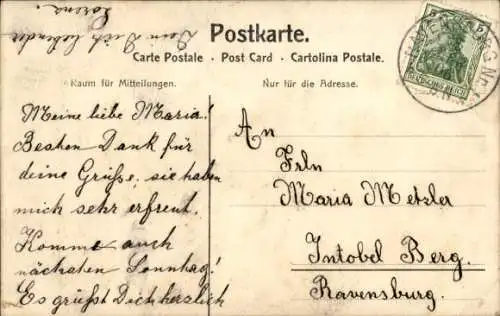 Postkarte.
Carte Postale · Post Card · Cartolina Postale.
Raum für Mitteilungen.
Nur für die Adresse.
Meine liebe Maria!
Besten Dank für
deine Grüße, sie haben
mich sehr erfreut.
Komme auch
nächsten Sonntag!
Es grüßt Dich herzlich
Dein Dich liebender
Lorenz.
An
Frln
Maria Metzler
Intobel Berg.
Ravensburg.
DEUTSCHES REICH